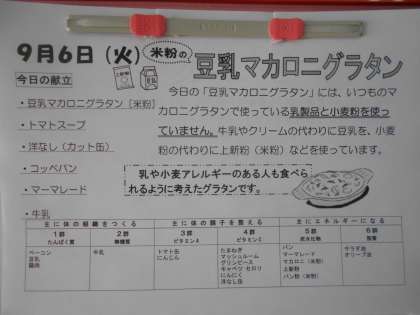 9月6日（火）
米粉の
豆乳マカロニグラタン
今日の献立
・豆乳マカロニグラタン［米粉］
・トマトスープ
・洋なし（カット缶）
・コッペパン
・マーマレード
・牛乳
今日の「豆乳マカロニグラタン」には、いつものマ
カロニグラタンで使っている乳製品と小麦粉を使っ
ていません。牛乳やクリームの代わりに豆乳を、小麦
粉の代わりに上新粉（米粉）などを使っています。
乳や小麦アレルギーのある人も食べら
れるように考えたグラタンです。
主に体の組織をつくる 主に体の調子を整える 主にエネルギーになる
1群 2群 3群 4群 5群 6群
たんぱく質 無機質 ビタミンA ビタミンC 炭水化物 脂質
ベーコン 牛乳 トマト缶 たまねぎ パン サラダ油
豆乳 にんじん マッシュルーム マーマレード オリーブ油
鶏肉 グリンピース マカロニ（米粉）
キャベツ セロリ 上新粉
にんにく パン粉（米粉）
洋なし缶